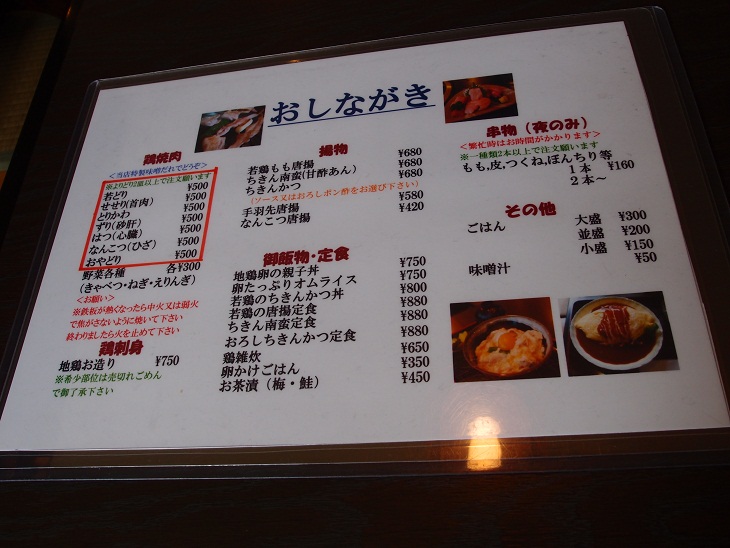 おしながき
鶏焼肉
＜当店特製味噌だれでどうぞ＞
※よりどり2皿以上で注文願います
若どり ¥500
せせり(首肉) ¥500
とりかわ ¥500
ずり(砂肝) ¥500
はつ(心臓) ¥500
なんこつ(ひざ) ¥500
おやどり ¥500
野菜各種 各¥300
(きゃべつ・ねぎ・えりんぎ)
＜お願い＞
※鉄板が熱くなったら中火又は弱火
で焦がさないように焼いて下さい
終わりましたら火を止めて下さい
鶏刺身
地鶏お造り ¥750
※希少部位は売切れごめん
で御了承下さい
揚物
若鶏もも唐揚 ¥680
ちきん南蛮(甘酢あん) ¥680
ちきんかつ ¥680
(ソース又はおろしポン酢をお選び下さい)
手羽先唐揚 ¥580
なんこつ唐揚 ¥420
御飯物・定食
地鶏卵の親子丼 ¥750
卵たっぷりオムライス ¥750
若鶏のちきんかつ丼 ¥800
若鶏の唐揚定食 ¥880
ちきん南蛮定食 ¥880
おろしちきんかつ定食 ¥880
鶏雑炊 ¥650
卵かけごはん ¥350
お茶漬（梅・鮭） ¥450
串物（夜のみ）
＜繁忙時はお時間がかかります＞
※一種類2本以上で注文願います
もも,皮,つくね,ぼんちり等
1本 ¥160
2本～
その他
ごはん 大盛 ¥300
並盛 ¥200
小盛 ¥150
味噌汁 ¥50